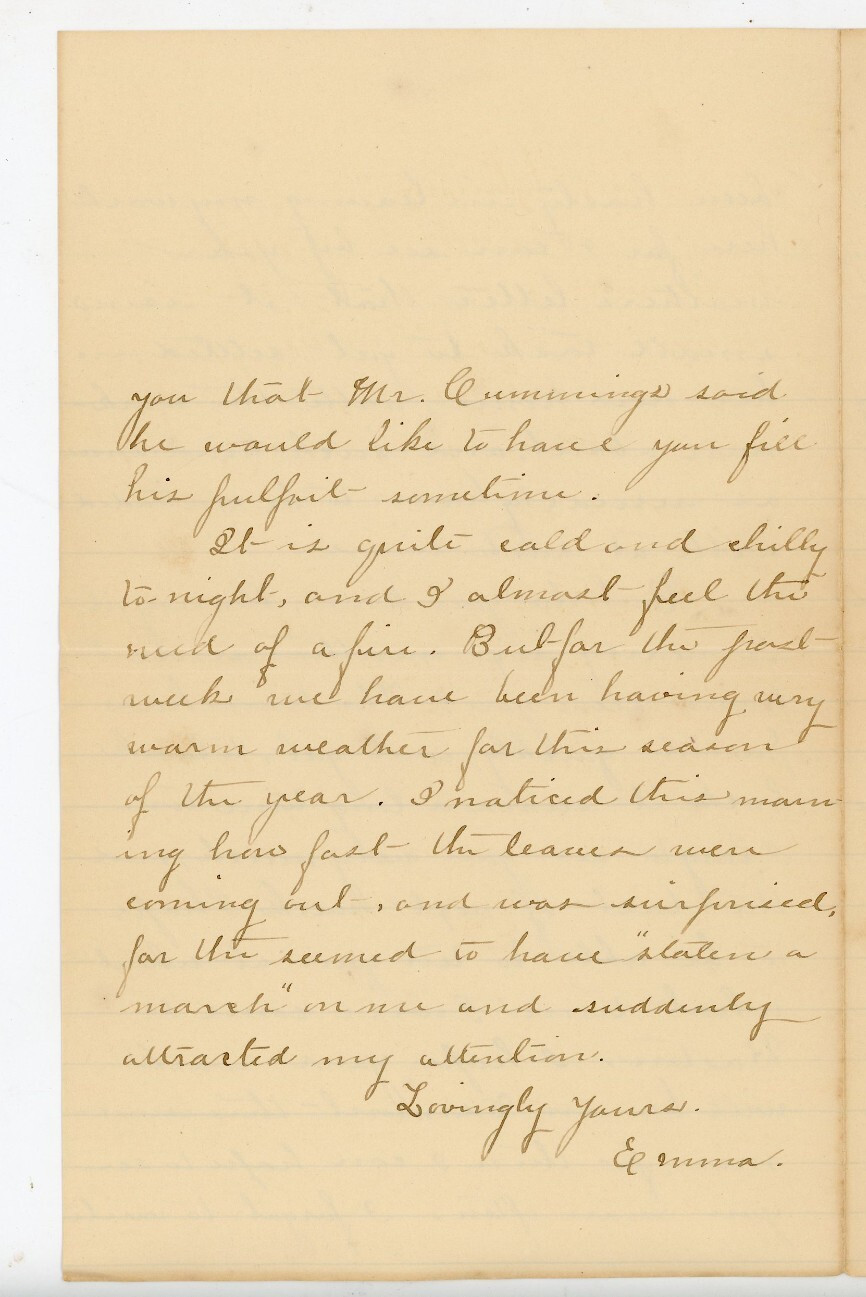 you that Mr. Cummings said
he would like to have you fill
his pulpit sometime.
It is quite cold and chilly
to-night, and I almost feel the
need of a fire. But for the past
week we have been having very
warm weather for this season
of the year. I noticed this morn-
ing how fast the leaves were
coming out, and was surprised,
for the seemed to have "stolen a
march" on me and suddenly
attracted my attention.
Lovingly Yours.
Emma.